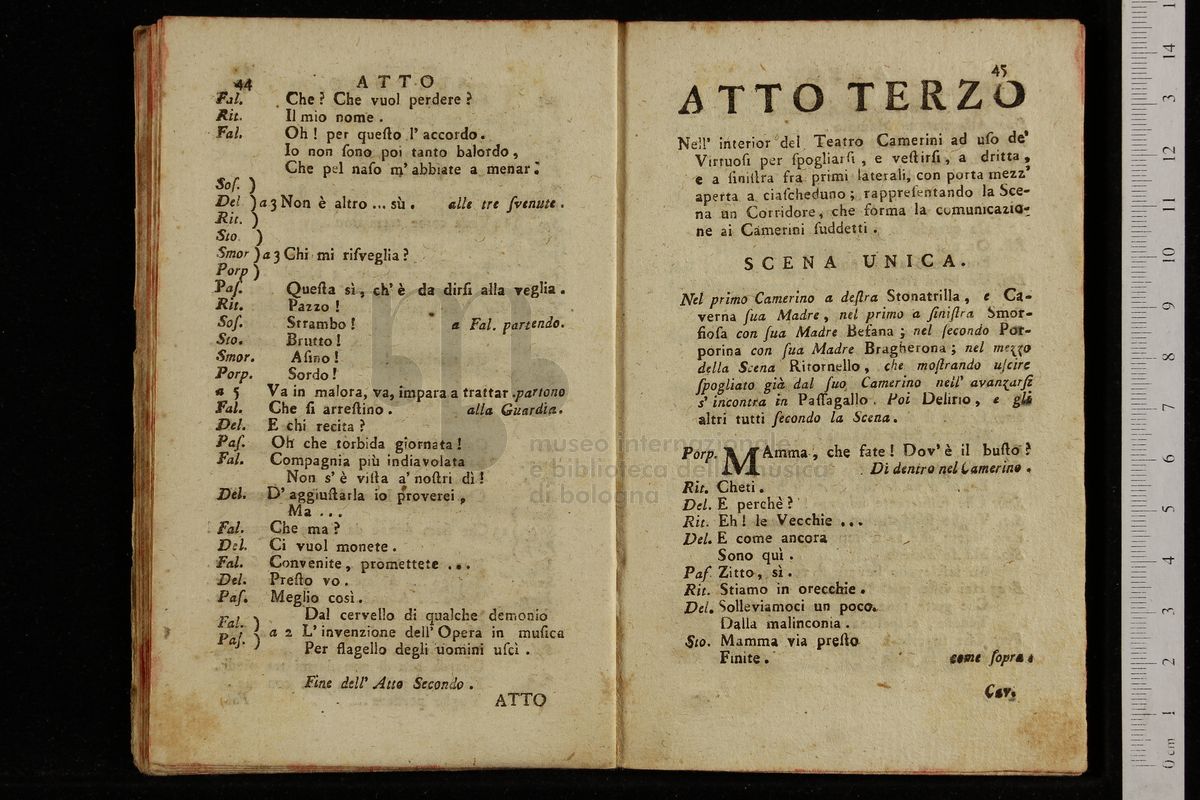 44 ATTO
Fal. Che? Che vuol perdere?
Rit. Il mio nome.
Fal. Oh! per queſto l'accordo.
Io non ſono poi tanto balordo,
Che pel naſo m'abbiate a menar.
Soſ. )
Del )a 3 Non è altro... sù. alle tre ſvenute.
Rit. )
Sto. )
Smor )a 3 Chi mi riſveglia?
Porp )
Paſ. Queſta sì, ch'è da dirſi alla veglia.
Rit. Pazzo!
Soſ. Strambo! a Fal. partendo.
Sto. Brutto!
Smor. Aſino!
Porp. Sordo!
a 5 Va in malora, va, impara a trattar. partono
Fal. Che ſi arreſtino. alla Guardia.
Del. E chi recita?
Paſ. Oh che torbida giornata!
Fal. Compagnia più indiavolata
Non s'è viſta a' noſtri dì!
Del. D'aggiuſtarla io proverei,
Ma...
Fal. Che ma?
Del. Ci vuol monete.
Fal. Convenite, promettete...
Del. Preſto vo.
Paſ. Meglio così.
Dal cervello di qualche demonio
Fal. )
Paſ. ) a 2 L'invenzione dell'Opera in muſica
Per flagello degli uomini uſcì.
Fine dell' Atto Secondo.
ATTO
45
ATTO TERZO
Nell' interior del Teatro Camerini ad uſo de'
Virtuoſi per ſpogliarſi, e veſtirſi, a dritta,
e a ſiniſtra fra primi laterali, con porta mezz'
aperta a ciaſcheduno; rappreſentando la Sce-
na un Corridore, che forma la comunicazio-
ne ai Camerini ſuddetti.
SCENA UNICA.
Nel primo Camerino a deſtra Stonatrilla, e Ca-
verna ſua Madre, nel primo a ſiniſtra Smor-
fioſa con ſua Madre Befana; nel ſecondo Por-
porina con ſua Madre Bragherona; nel mezzo
della Scena Ritornello, che moſtrando uſcire
ſpogliato già dal ſuo Camerino nell' avanzarſi
s'incontra in Paſſagallo. Poi Delirio, e gli
altri tutti ſecondo la Scena.
Porp. MAmma, che fate! Dov'è il buſto?
Di dentro nel Camerino.
Rit. Cheti.
Del. E perchè?
Rit. Eh! le Vecchie...
Del. E come ancora
Sono quì.
Paſ Zitto, sì.
Rit. Stiamo in orecchie.
Del. Solleviamoci un poco.
Dalla malinconia.
Sto. Mamma via preſto
Finite. come ſopra.
Cav.
museo internazionale
e biblioteca della musica
di bologna
0 cm 1 2 3 4 5 6 7 8 9 10 11 12 13 14 1